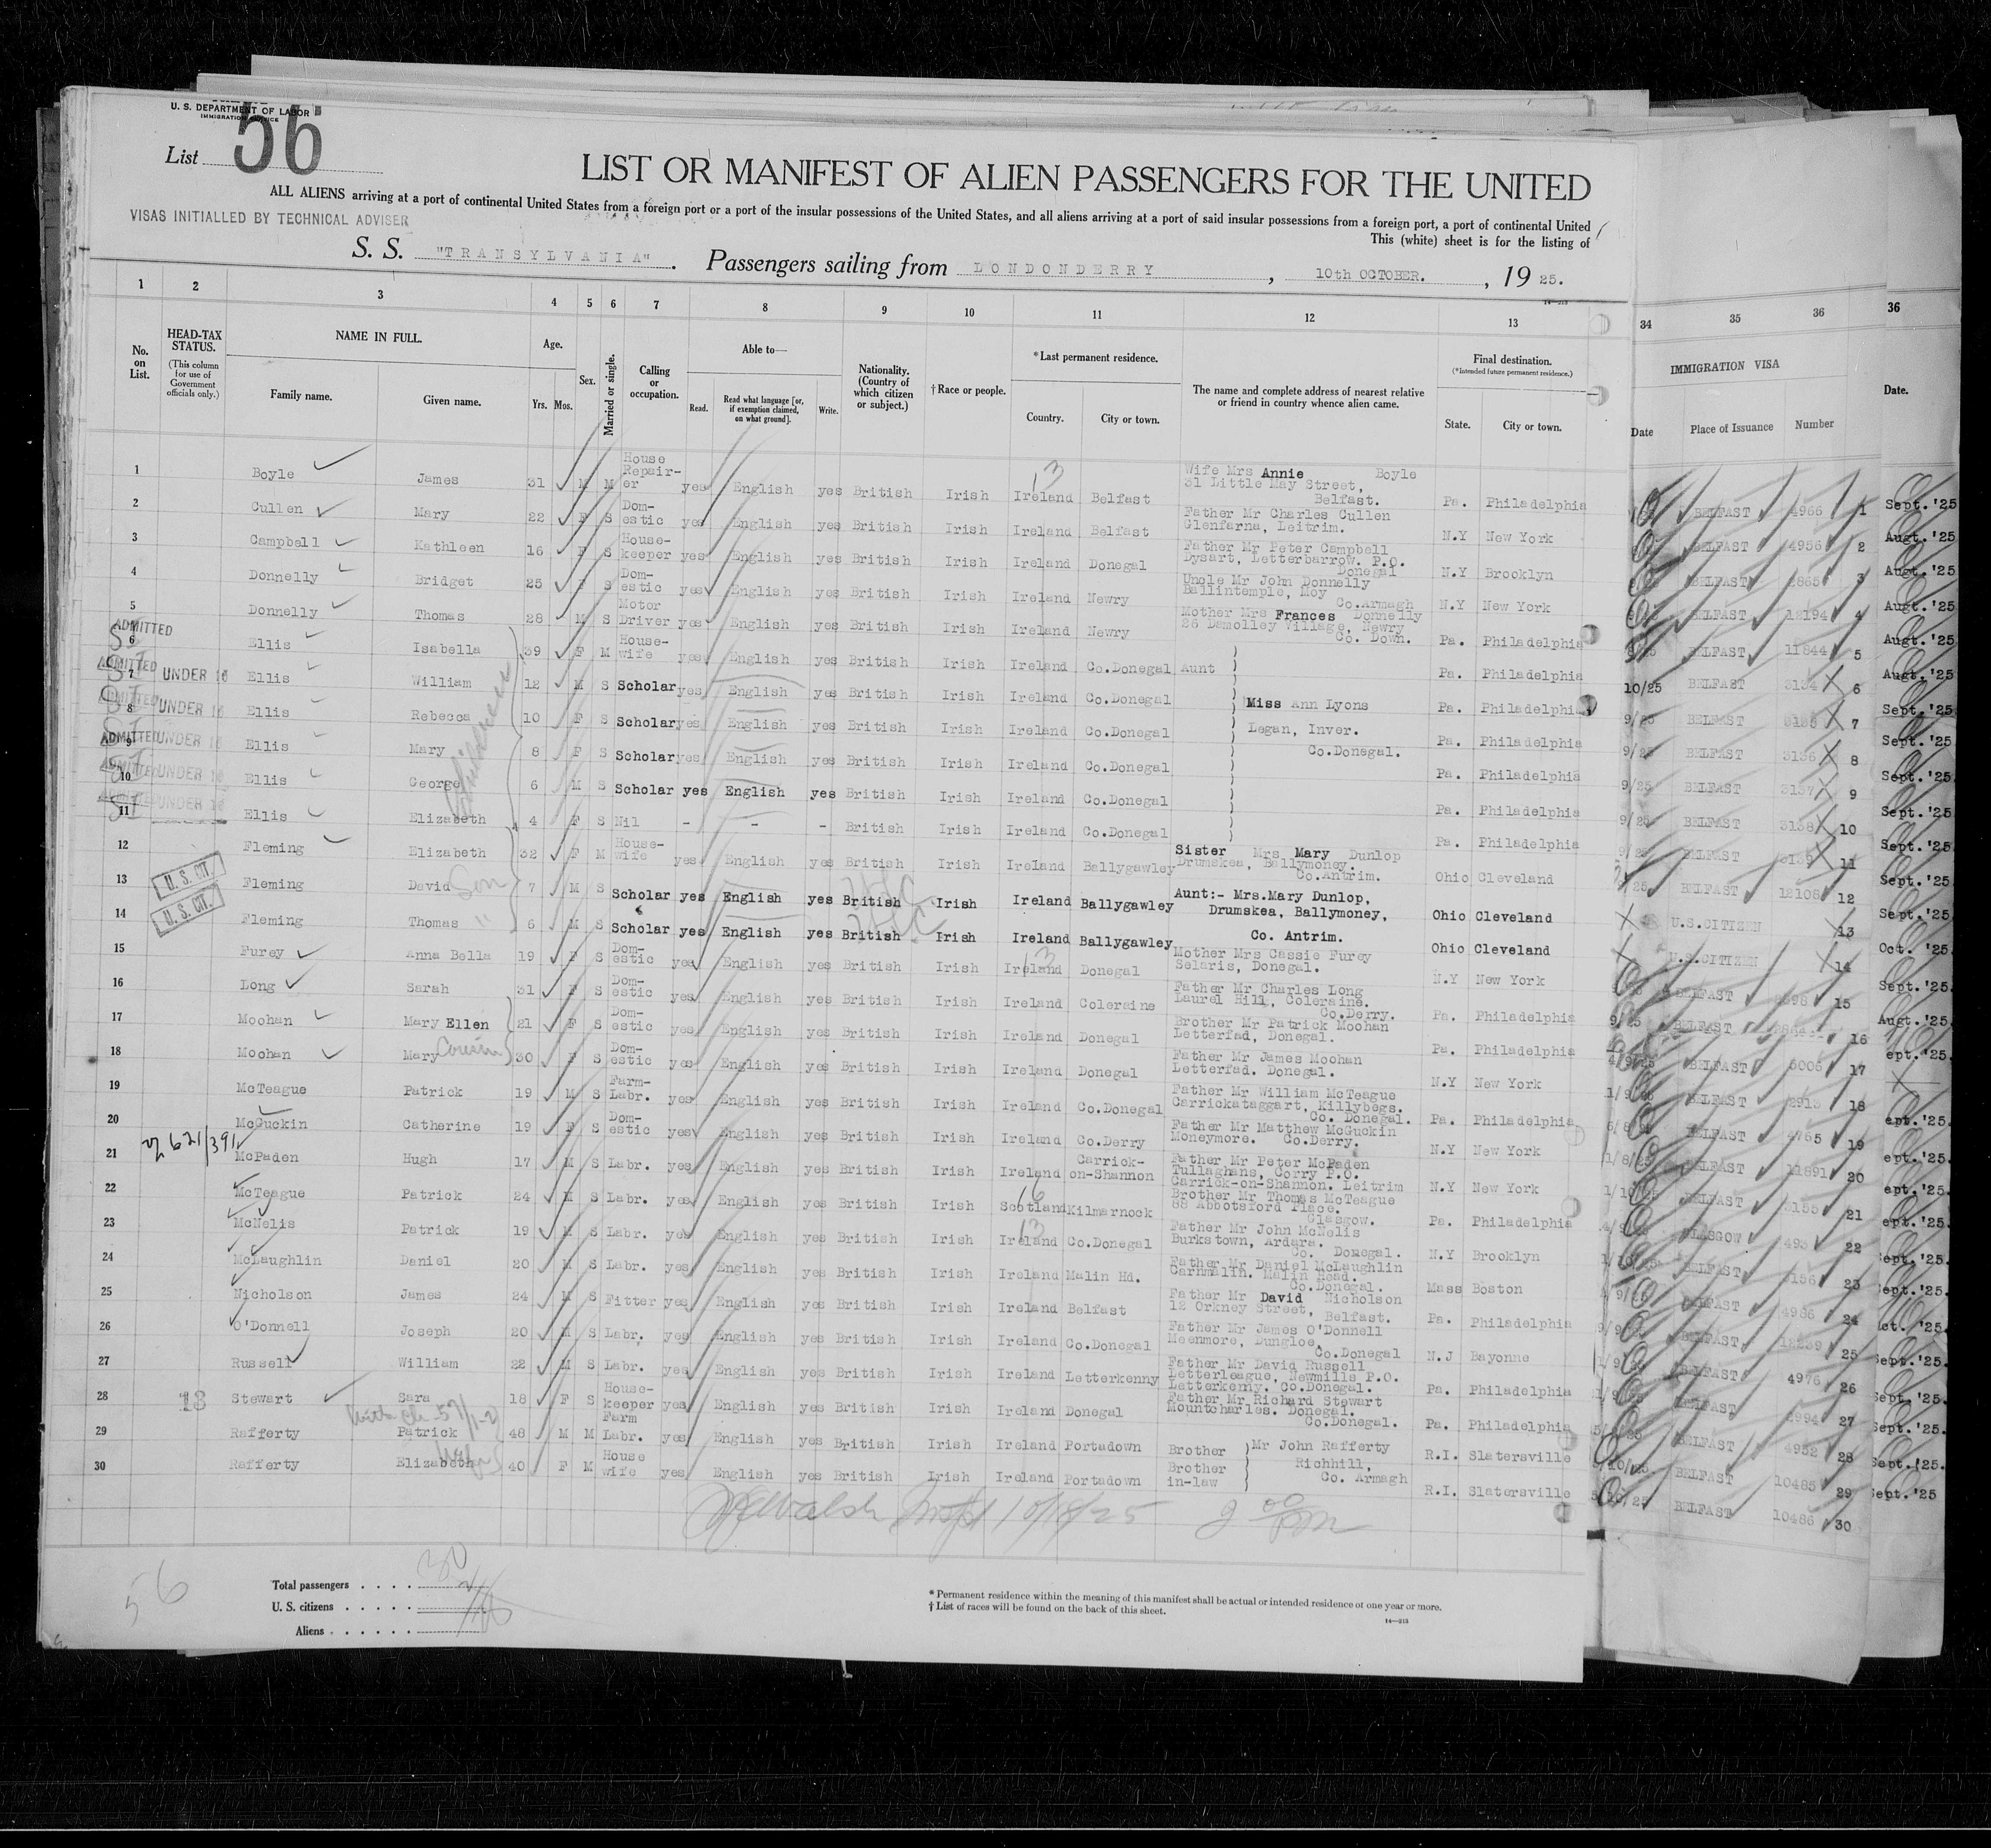 U. S. DEPARTMENT OF LABOR
IMMIGRATION SERVICE
List 56
LIST OR MANIFEST OF ALIEN PASSENGERS FOR THE UNITED
ALL ALIENS arriving at a port of continental United States from a foreign port or a port of the insular possessions of the United States, and all aliens arriving at a port of said insular possessions from a foreign port, a port of continental United
VISAS INITIALLED BY TECHNICAL ADVISER
This (white) sheet is for the listing of
S. S. "TRANSYLVANIA". Passengers sailing from LONDONDERRY, 10th OCTOBER., 19 25.
1 2 3 4 5 6 7 8 9 10 11 12 13 34 35 36 36
No. on List. HEAD-TAX STATUS. (This column for use of Government officials only.) NAME IN FULL. Family name. Given name. Age. Yrs. Mos. Sex. Married or single. Calling or occupation. Able to— Read. Read what language [or, if exemption claimed, on what ground]. Write. Nationality. (Country of which citizen or subject.) † Race or people. *Last permanent residence. Country. City or town. The name and complete address of nearest relative or friend in country whence alien came. Final destination. (*Intended future permanent residence.) State. City or town. IMMIGRATION VISA Date Place of Issuance Number Date.
1 Boyle James 31 M M House Repair-er yes English yes British Irish Ireland Belfast Wife Mrs Annie Boyle 31 Little May Street, Belfast. Pa. Philadelphia BELFAST 4966 1 Sept. '25
2 Cullen Mary 22 F S Dom-estic yes English yes British Irish Ireland Belfast Father Mr Charles Cullen Glenfarna, Leitrim. N.Y New York BELFAST 4956 2 Augt. '25
3 Campbell Kathleen 16 F S House-keeper yes English yes British Irish Ireland Donegal Father Mr Peter Campbell Dysart, Letterbarrow. P.O. Donegal N.Y Brooklyn BELFAST 2865 3 Augt. '25
4 Donnelly Bridget 25 F S Dom-estic yes English yes British Irish Ireland Newry Uncle Mr John Donnelly Ballintemple, Moy Co.Armagh N.Y New York BELFAST 12194 4 Augt. '25
5 Donnelly Thomas 28 M S Motor Driver yes English yes British Irish Ireland Newry Mother Mrs Frances Donnelly 26 Demolley Village, Newry Co. Down. Pa. Philadelphia BELFAST 11844 5 Augt. '25
ADMITTED 6 Ellis Isabella 39 F M House-wife yes English yes British Irish Ireland Co.Donegal Aunt Pa. Philadelphia 10/25 BELFAST 3134 6 Augt. '25
ADMITTED 7 UNDER 16 Ellis William 12 M S Scholar yes English yes British Irish Ireland Co.Donegal Miss Ann Lyons Pa. Philadelphia 9/25 BELFAST 3135 7 Sept. '25
ADMITTED 8 UNDER 16 Ellis Rebecca 10 F S Scholar yes English yes British Irish Ireland Co.Donegal Legan, Inver. Pa. Philadelphia 9/25 BELFAST 3136 8 Sept. '25
ADMITTED 9 UNDER 16 Ellis Mary 8 F S Scholar yes English yes British Irish Ireland Co.Donegal Co.Donegal. Pa. Philadelphia 9/25 BELFAST 3137 9 Sept. '25
ADMITTED 10 UNDER 16 Ellis George 6 M S Scholar yes English yes British Irish Ireland Co.Donegal Pa. Philadelphia 9/25 BELFAST 3138 10 Sept. '25
11 UNDER 16 Ellis Elizabeth 4 F S Nil - - - British Irish Ireland Co.Donegal Pa. Philadelphia 9/25 BELFAST 3139 11 Sept. '25
children
12 Fleming Elizabeth 32 F M House-wife yes English yes British Irish Ireland Ballygawley Sister Mrs Mary Dunlop Drumskea, Ballymoney. Co.Antrim. Ohio Cleveland BELFAST 12108 12 Sept. '25
13 U. S. CIT. Fleming David Son 7 M S Scholar yes English yes British USC Irish Ireland Ballygawley Aunt:- Mrs.Mary Dunlop, Drumskea, Ballymoney, Ohio Cleveland U.S.CITIZEN 13 Sept. '25
14 U. S. CIT. Fleming Thomas " 6 M S Scholar yes English yes British USC Irish Ireland Ballygawley Co. Antrim. Ohio Cleveland U.S.CITIZEN 14 Oct. '25
15 Furey Anna Bella 19 F S Dom-estic yes English yes British Irish Ireland Donegal Mother Mrs Cassie Furey Selaris, Donegal. N.Y New York BELFAST 15 Sept. '25
16 Long Sarah 31 F S Dom-estic yes English yes British Irish Ireland Coleraine Father Mr Charles Long Laurel Hill, Coleraine. Co.Derry. Pa. Philadelphia 9/25 BELFAST 16 Augt. '25
17 Moohan Mary Ellen 21 F S Dom-estic yes English yes British Irish Ireland Donegal Brother Mr Patrick Moohan Letterfad, Donegal. Pa. Philadelphia BELFAST 5005 17 ept. '25.
18 Moohan Mary Cousin 30 F S Dom-estic yes English yes British Irish Ireland Donegal Father Mr James Moohan Letterfad. Donegal. N.Y New York BELFAST 2913 18
19 McTeague Patrick 19 M S Farm-Labr. yes English yes British Irish Ireland Co.Donegal Father Mr William McTeague Carrickataggart, Killybegs. Co. Donegal. Pa. Philadelphia BELFAST 4765 19 ept. '25.
20 McGuckin Catherine 19 F S Dom-estic yes English yes British Irish Ireland Co.Derry Father Mr Matthew McGuckin Moneymore. Co.Derry. N.Y New York BELFAST 11891 20 ept. '25.
21 McPaden Hugh 17 M S Labr. yes English yes British Irish Ireland Carrick-on-Shannon Father Mr Peter McPaden Tullaghans, Corry P.O. Carrick-on-Shannon. Leitrim N.Y New York BELFAST 3155 21 ept. '25.
22 McTeague Patrick 24 M S Labr. yes English yes British Irish Scotland Kilmarnock Brother Mr Thomas McTeague 88 Abbotsford Place. Glasgow. Pa. Philadelphia GLASGOW 493 22 ept. '25.
23 McNelis Patrick 19 M S Labr. yes English yes British Irish Ireland Co.Donegal Father Mr John McNelis Burkstown, Ardara. Co. Donegal. N.Y Brooklyn BELFAST 3156 23 Sept. '25.
24 McLaughlin Daniel 20 M S Labr. yes English yes British Irish Ireland Malin Hd. Father Mr Daniel McLaughlin Carnmalin. Malin Head. Co.Donegal. Mass Boston BELFAST 4986 24 Sept. '25.
25 Nicholson James 24 M S Fitter yes English yes British Irish Ireland Belfast Father Mr David Nicholson 12 Orkney Street, Belfast. Pa. Philadelphia BELFAST 12239 25 ct. '25.
26 O'Donnell Joseph 20 M S Labr. yes English yes British Irish Ireland Co.Donegal Father Mr James O'Donnell Meenmore, Dungloe, Co.Donegal N.J Bayonne BELFAST 4976 26 Sept. '25.
27 Russell William 22 M S Labr. yes English yes British Irish Ireland Letterkenny Father Mr David Russell Letterleague, Newmills P.O. Letterkenny. Co.Donegal. Pa. Philadelphia BELFAST 2994 27 Sept. '25.
28 Stewart Sara 18 F S House-keeper yes English yes British Irish Ireland Donegal Father Mr Richard Stewart Mountcharles. Donegal. Co.Donegal. Pa. Philadelphia BELFAST 4952 28 Sept. '25.
29 Rafferty Patrick 48 M M Farm Labr. yes English yes British Irish Ireland Portadown Brother Mr John Rafferty R.I. Slatersville BELFAST 10485 29 Sept. '25.
30 Rafferty Elizabeth wife 40 F M House wife yes English yes British Irish Ireland Portadown Brother in-law Richhill, Co. Armagh R.I. Slatersville BELFAST 10486 30 Sept. '25
Walsh Insp 10/18/25 2 00 pm
56
Total passengers . . . . 30
U. S. citizens . . . . .
Aliens . . . . . .
* Permanent residence within the meaning of this manifest shall be actual or intended residence of one year or more.
† List of races will be found on the back of this sheet.
14—213